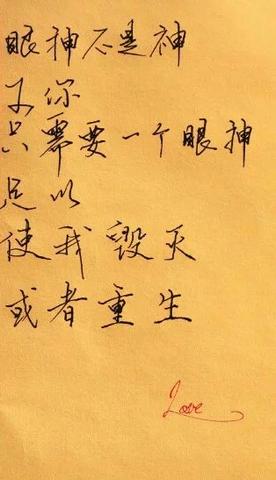 眼神不是神
又你
只需要一个眼神
足以
使我毁灭
或者重生
Love